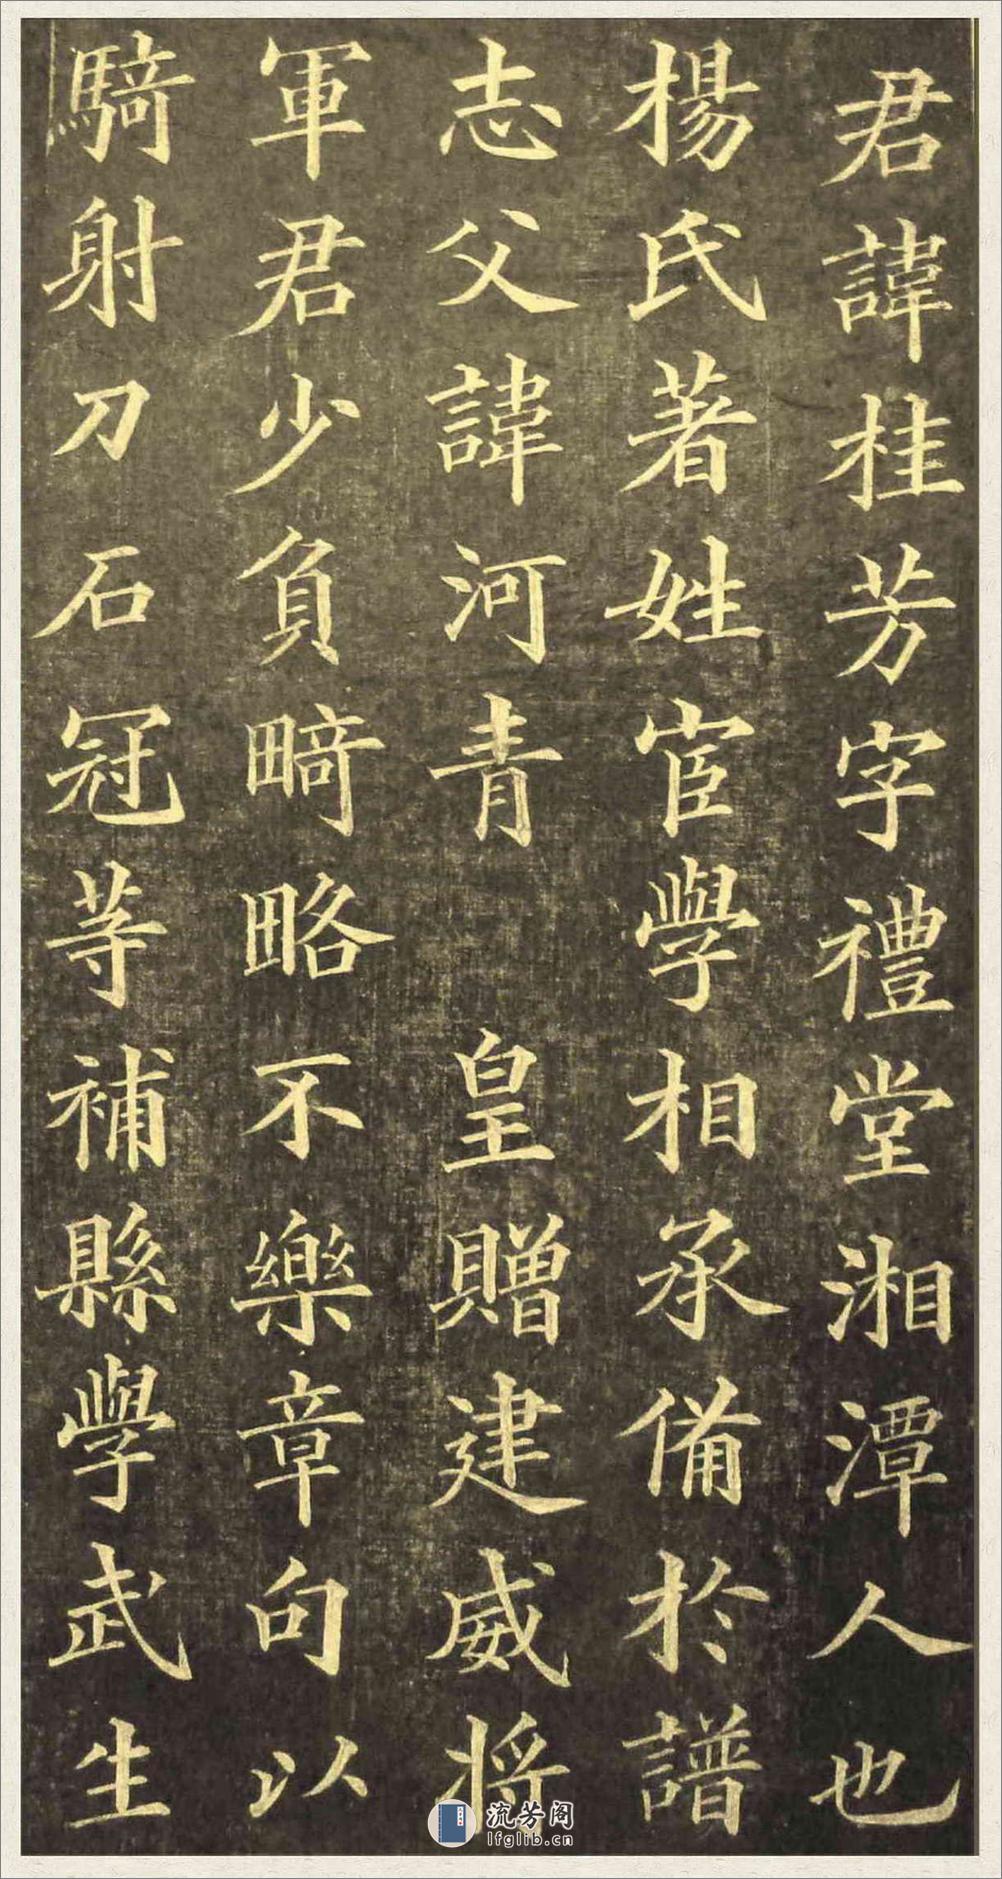 君諱桂芳字禮堂湘潭人也
楊氏著姓宦學相承備於譜
志父諱河青　皇贈建威將
軍君少負畸略不樂章句以
騎射刀石冠等補縣學武生
流芳阁
lfglib.cn